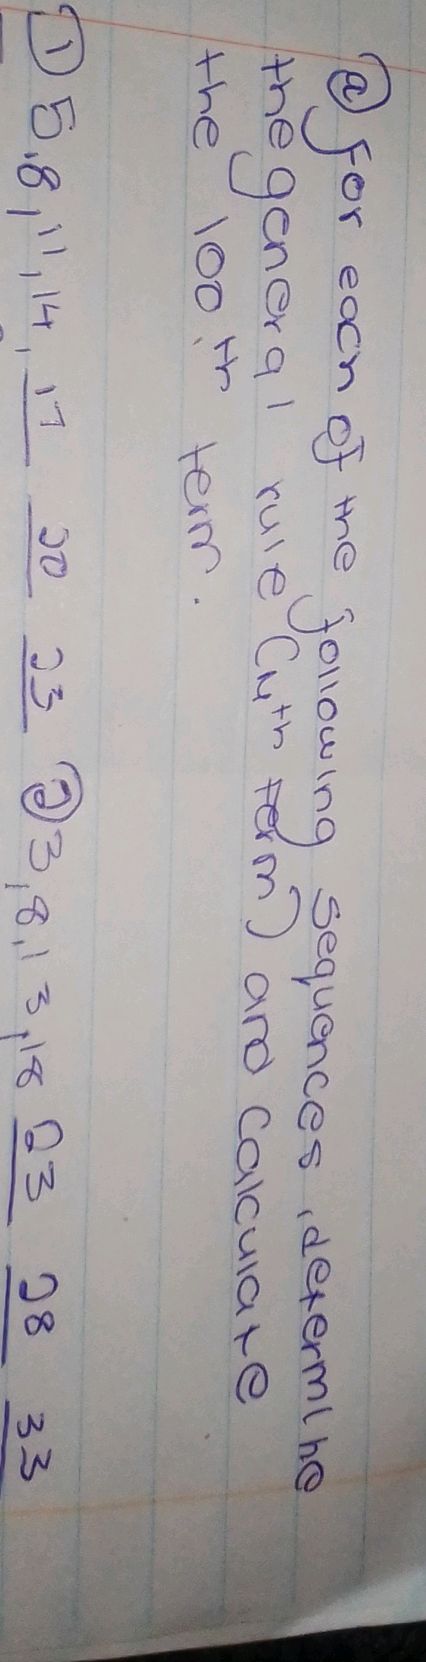 (a) For each of the following sequences, determine
the general rule (nth term) and calculate
the 100th term.
① 5, 8, 11, 14, 17 20 23 ② 3, 8, 13, 18 23 28 33